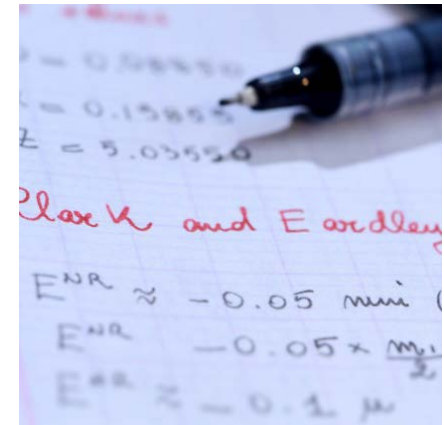 = 0.19855
Z = 5.03550
Clark and Eardley
E^NR ≈ -0.05 mini (
E^NR -0.05 × m₁/2
≈ -0.1 μ